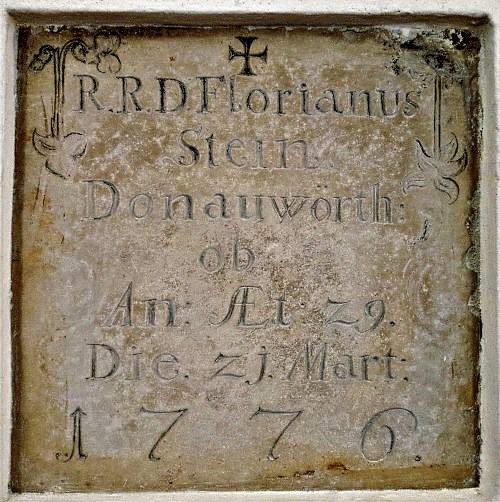 R.R.D.Florianus
Stein.
Donauwörth:
ob
An: Æt. 29.
Die. 2j. Mart:
1776.